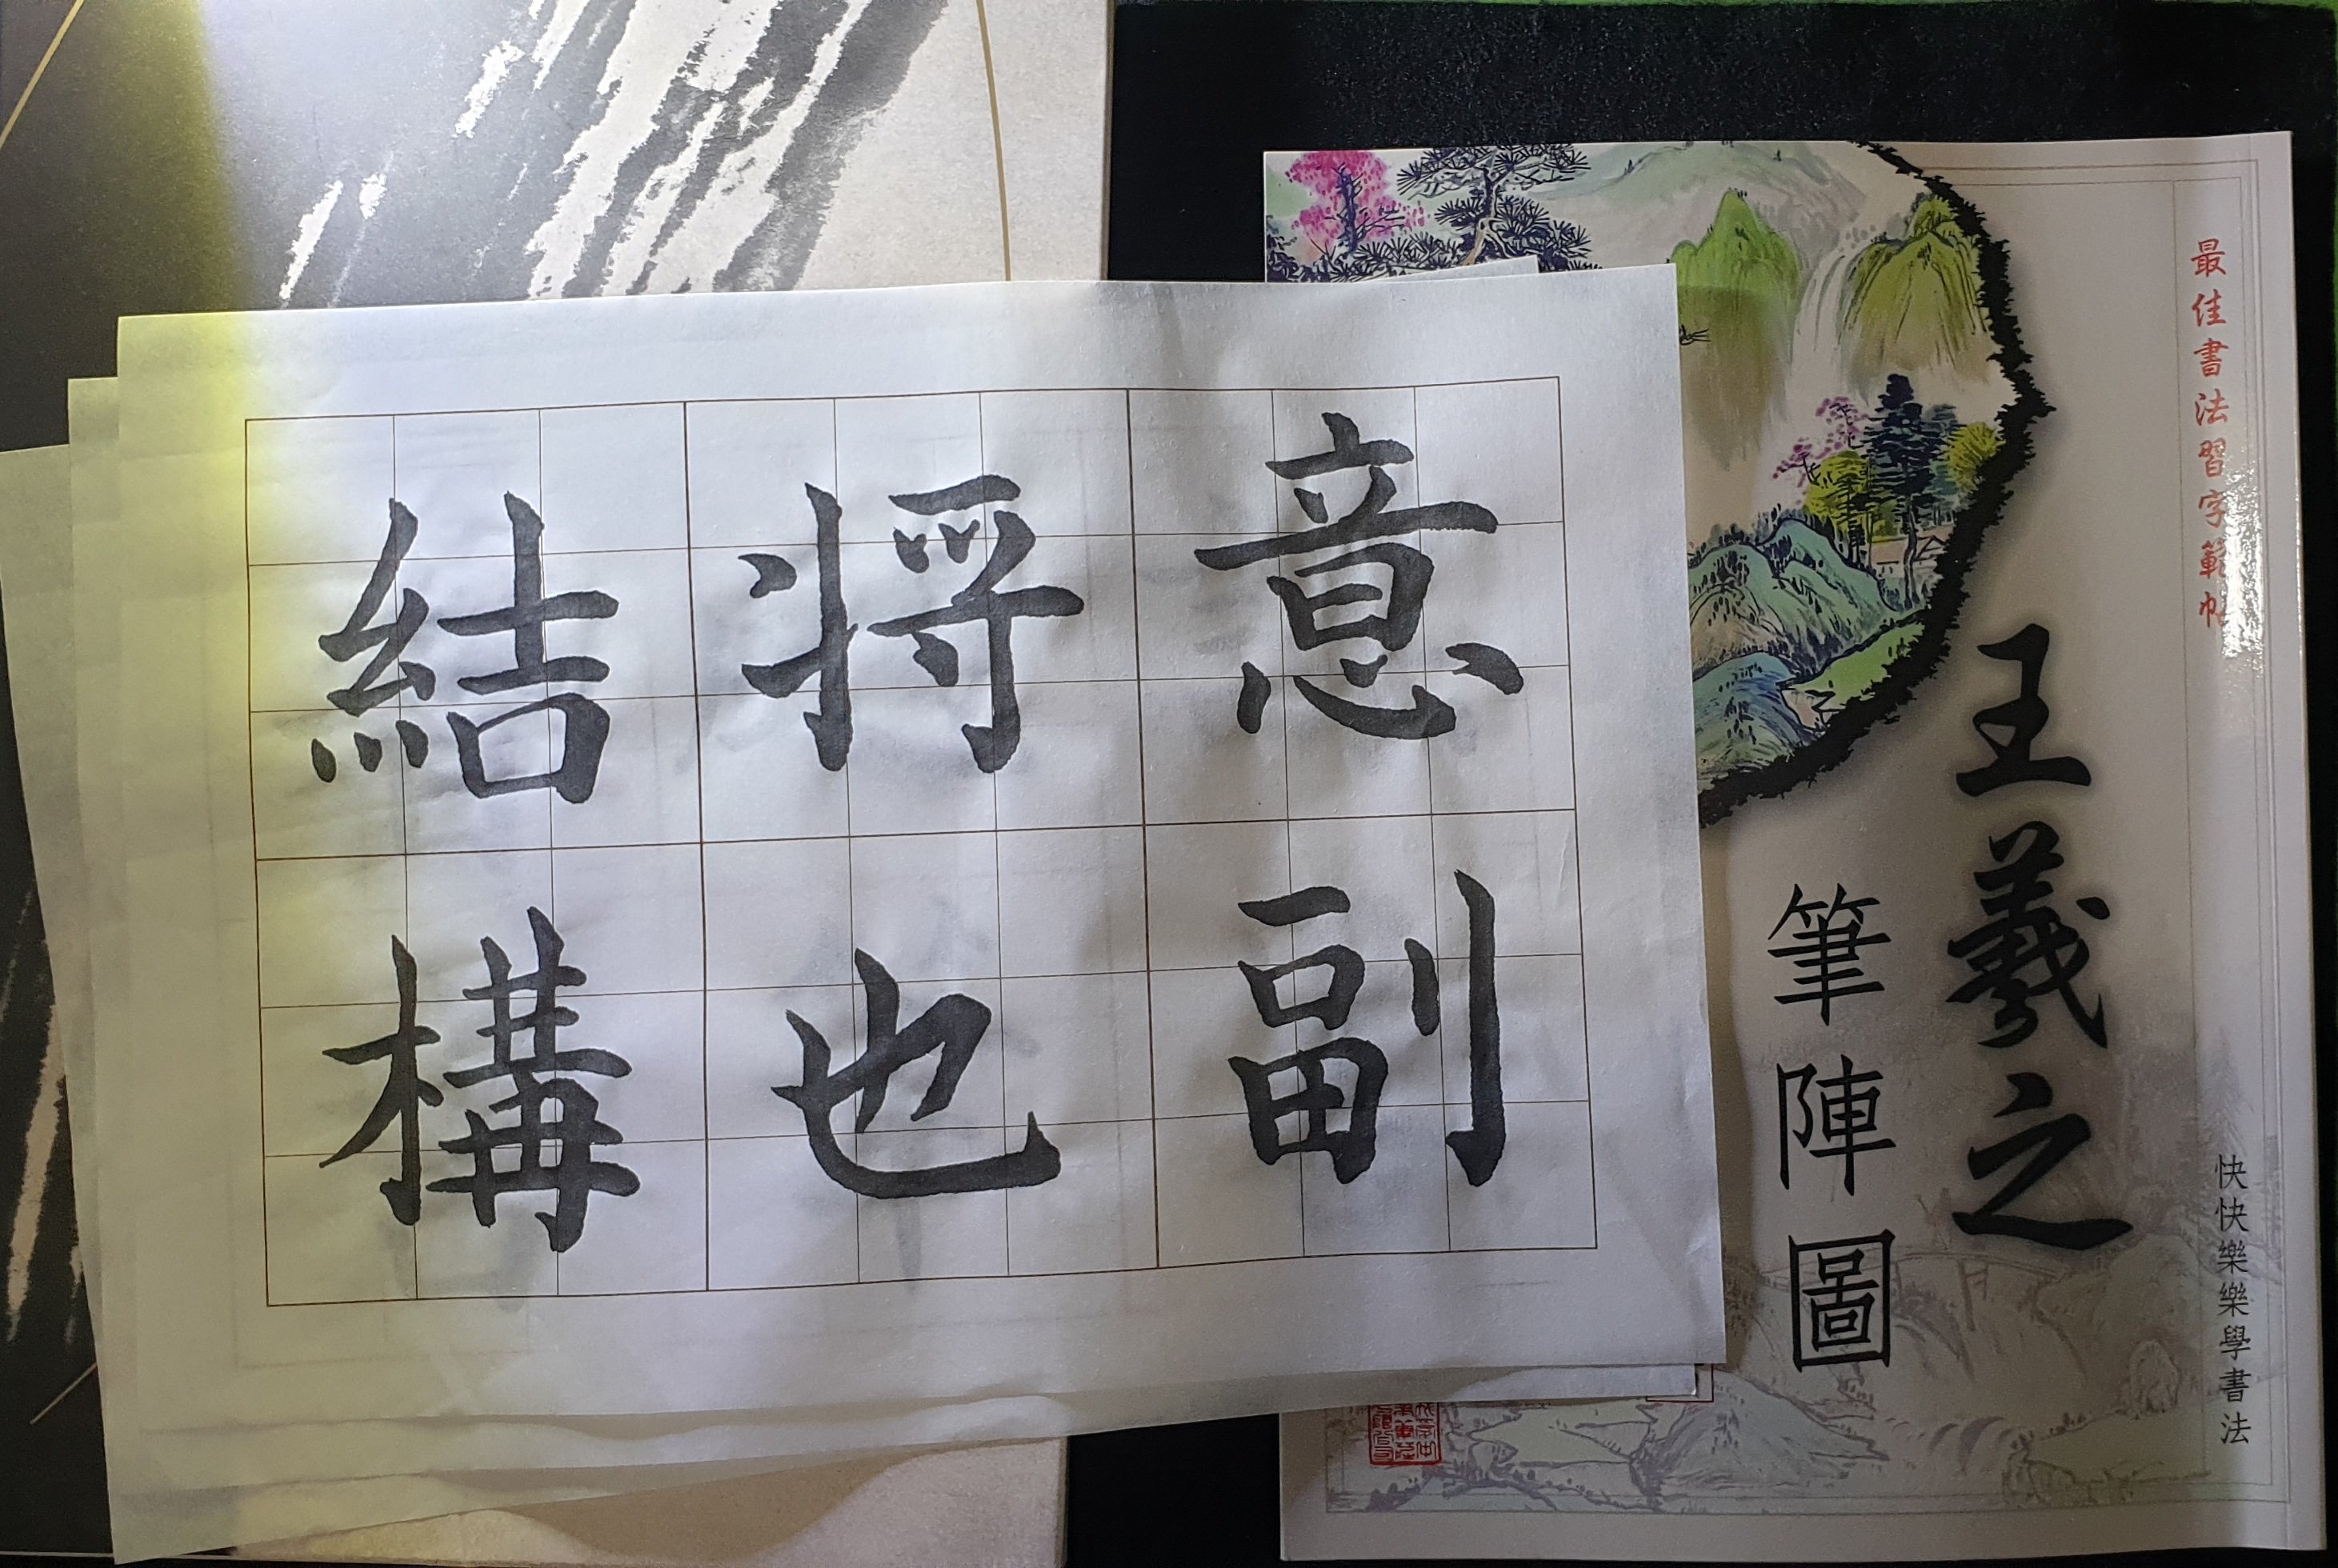 意副
将也
結構
最佳書法習字範帖
王羲之
筆陣圖
快快樂樂學書法